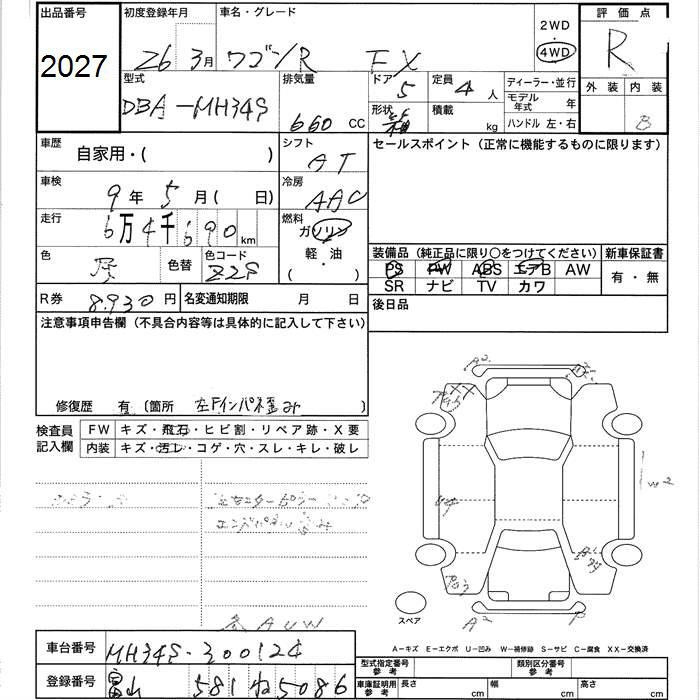 出品番号 初度登録年月 車名・グレード 2WD 評価点
2027 26 3月 ワゴンR FX 4WD R
型式 排気量 ドア 定員 ディーラー・並行 外装 内装
DBA-MH34S 660 CC 5 4人 モデル年式 年
形状 箱 積載 kg ハンドル 左・右 B
車歴 自家用・( ) シフト AT セールスポイント (正常に機能するものに限ります)
車検 9年 5月 ( 日) 冷房 AAC
走行 6万4千690 km 燃料 ガソリン
軽・油
( )
色 色替 色コード Z2S
装備品 (純正品に限り〇をつけてください) 新車保証書
PS PW ABS エアB AW 有・無
SR ナビ TV カワ
R券 8930円 名変通知期限 月 日 後日品
注意事項申告欄 (不具合内容等は具体的に記入して下さい)
修復歴 有 (箇所 左Fインパネ歪み )
検査員 FW キズ・飛石・ヒビ割・リペア跡・X要
記入欄 内装 キズ・汚レ・コゲ・穴・スレ・キレ・破レ
XX
W2
A2 P
スペア
AUW
A-キズ E-エクボ U-凹み W-補修跡 S-サビ C-腐食 XX-交換済
車台番号 MH34S-300124
登録番号 富山 581 ね5086
型式指定番号 参考 類別区分番号 参考
車庫証明用 参考 長さ cm 幅 cm 高さ cm